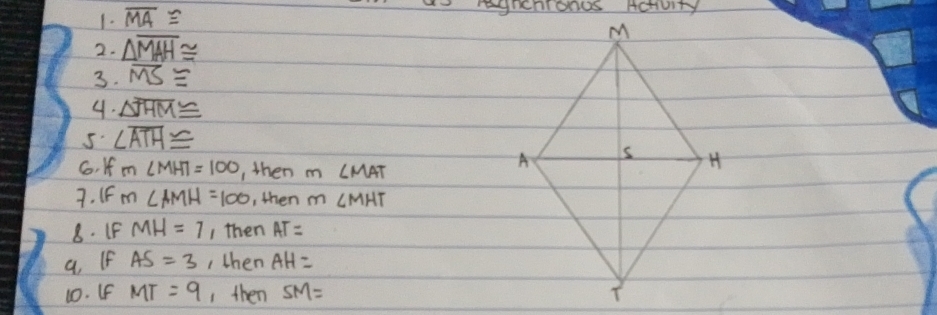 Asynchronus Activity
1. MA ≅
2. △MAH ≅
3. MS ≅
4. △THM ≅
5. ∠ATH ≅
6. If m ∠MHT = 100, then m ∠MAT
7. If m ∠AMH = 100, then m ∠MHT
8. If MH = 7, then AT =
9. If AS = 3, then AH =
10. If MT = 9, then SM =
M
A S H
T